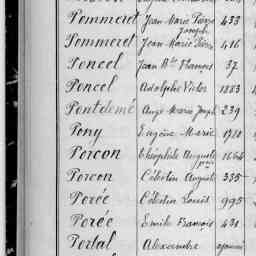 Pommeret Jean Marie Pierre 433
Joseph
Pommeret Jean Marie Pierre 416
Poncel Jean Bte François 37
Poncel Adolphe Victor 1883
Pontdemé Ange Marie Joseph 239
Pony Eugène Marie 1718
Porcon Théophile Auguste 1664
Porcon Célestin Auguste 335
Porée Célestin Louis 995
Porée Emile François 431
Portal Alexandre ajourné